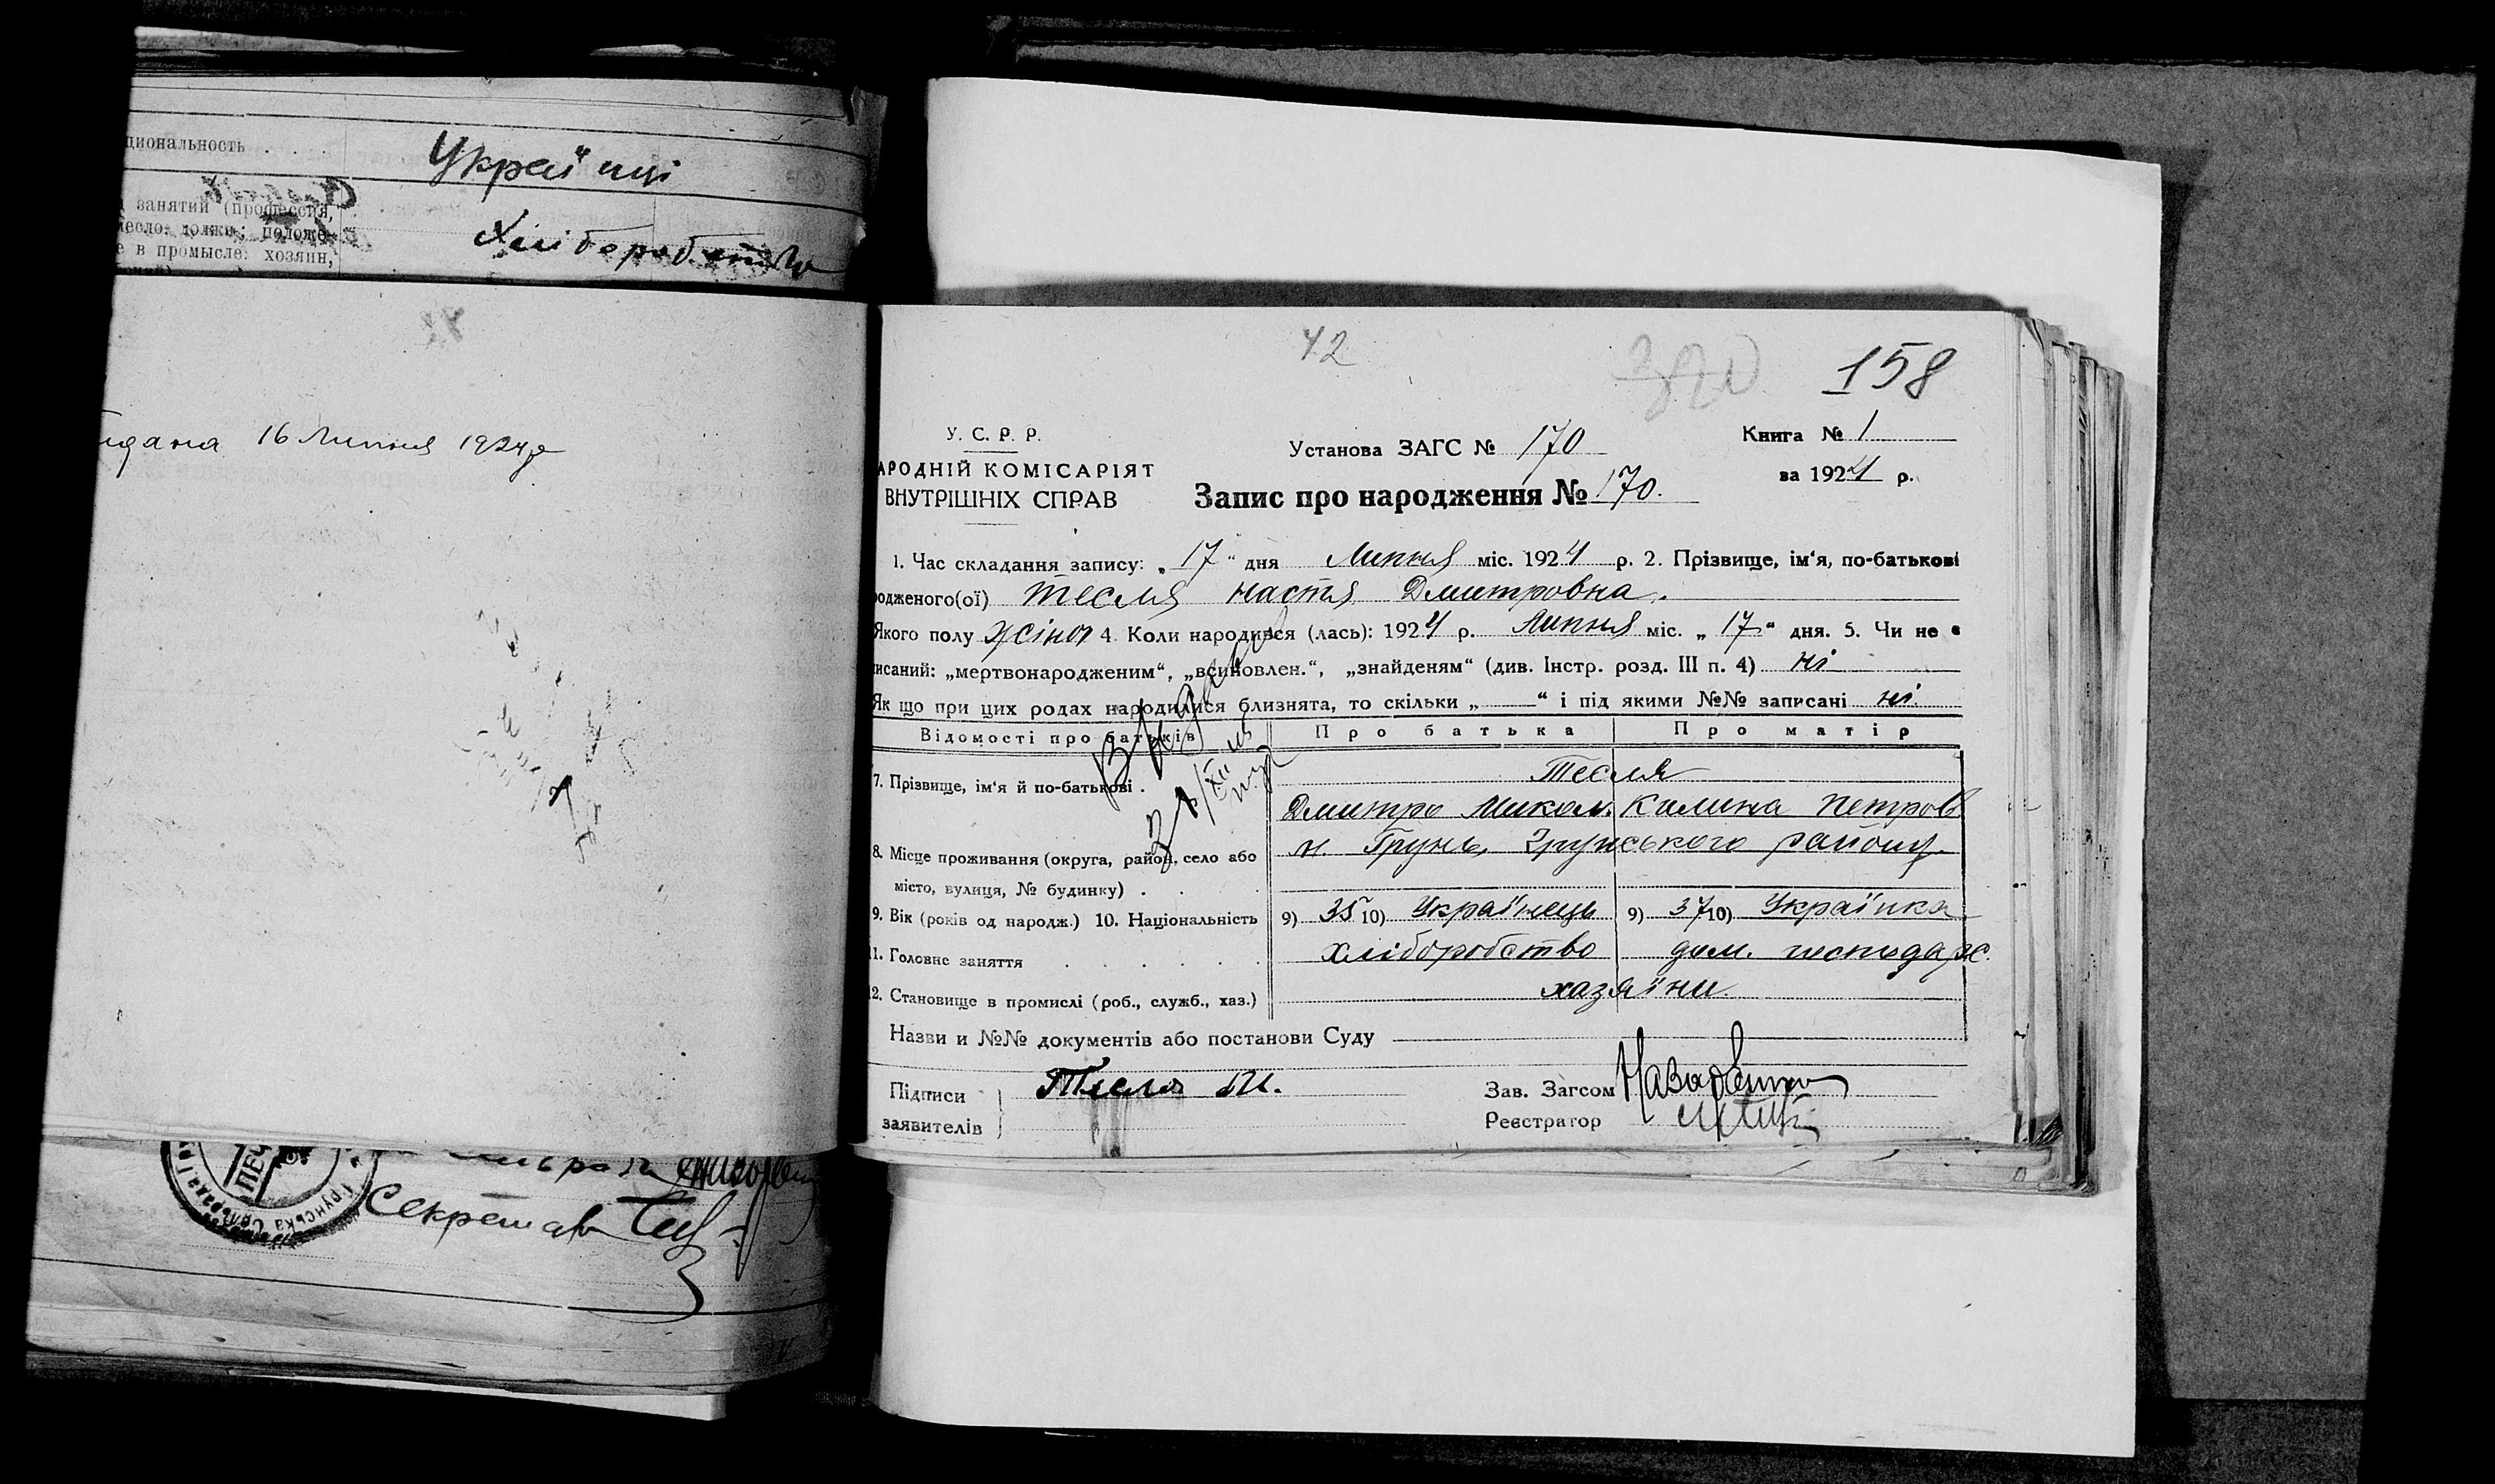 циональность . . . . Українці
занятий (профессия,
месло: должн; положе-
е в промысле: хозяин, Хліборобство
42
320
158
идана 16 Липня 1924р
У. С. Р. Р.
АРОДНІЙ КОМІСАРІЯТ
ВНУТРІШНІХ СПРАВ
Установа ЗАГС № 170
Книга № 1
за 1924 р.
Запис про народження № 170.
1. Час складання запису: „17“ дня Липня міс. 1924 р. 2. Прізвище, ім‘я, по-батькові
одженого(ої) Тесля Настя Дмитровна.
Якого полу жіноч 4. Коли народився (лась): 1924 р. Липня міс. „17“ дня. 5. Чи не є
исаний: „мертвонародженим“, „всиновлен.“, „знайденям“ (див. Інстр. розд. III п. 4) ні
Як що при цих родах народилися близнята, то скільки „——“ і під якими №№ записані ні.
Відомості про батьків Про батька Про матір
7. Прізвище, ім‘я й по-батькові . Тесля
Дмитро Микол. Килина Петров
8. Місце проживання (округа, район, село або м. Грунь, Грунського району
місто, вулиця, № будинку) . .
9. Вік (років од народж.) 10. Національність 9) 35 10) Українець 9) 37 10) Українка
11. Головне заняття . . . . . . хліборобство дом. господарс.
12. Становище в промислі (роб., служб., хаз.) хазяїни
Назви и №№ документів або постанови Суду
Підписи
заявителів
Тесля
Зав. Загсом
Реєстратор
Секретар
ПЕЧ
Грунська Сільрада